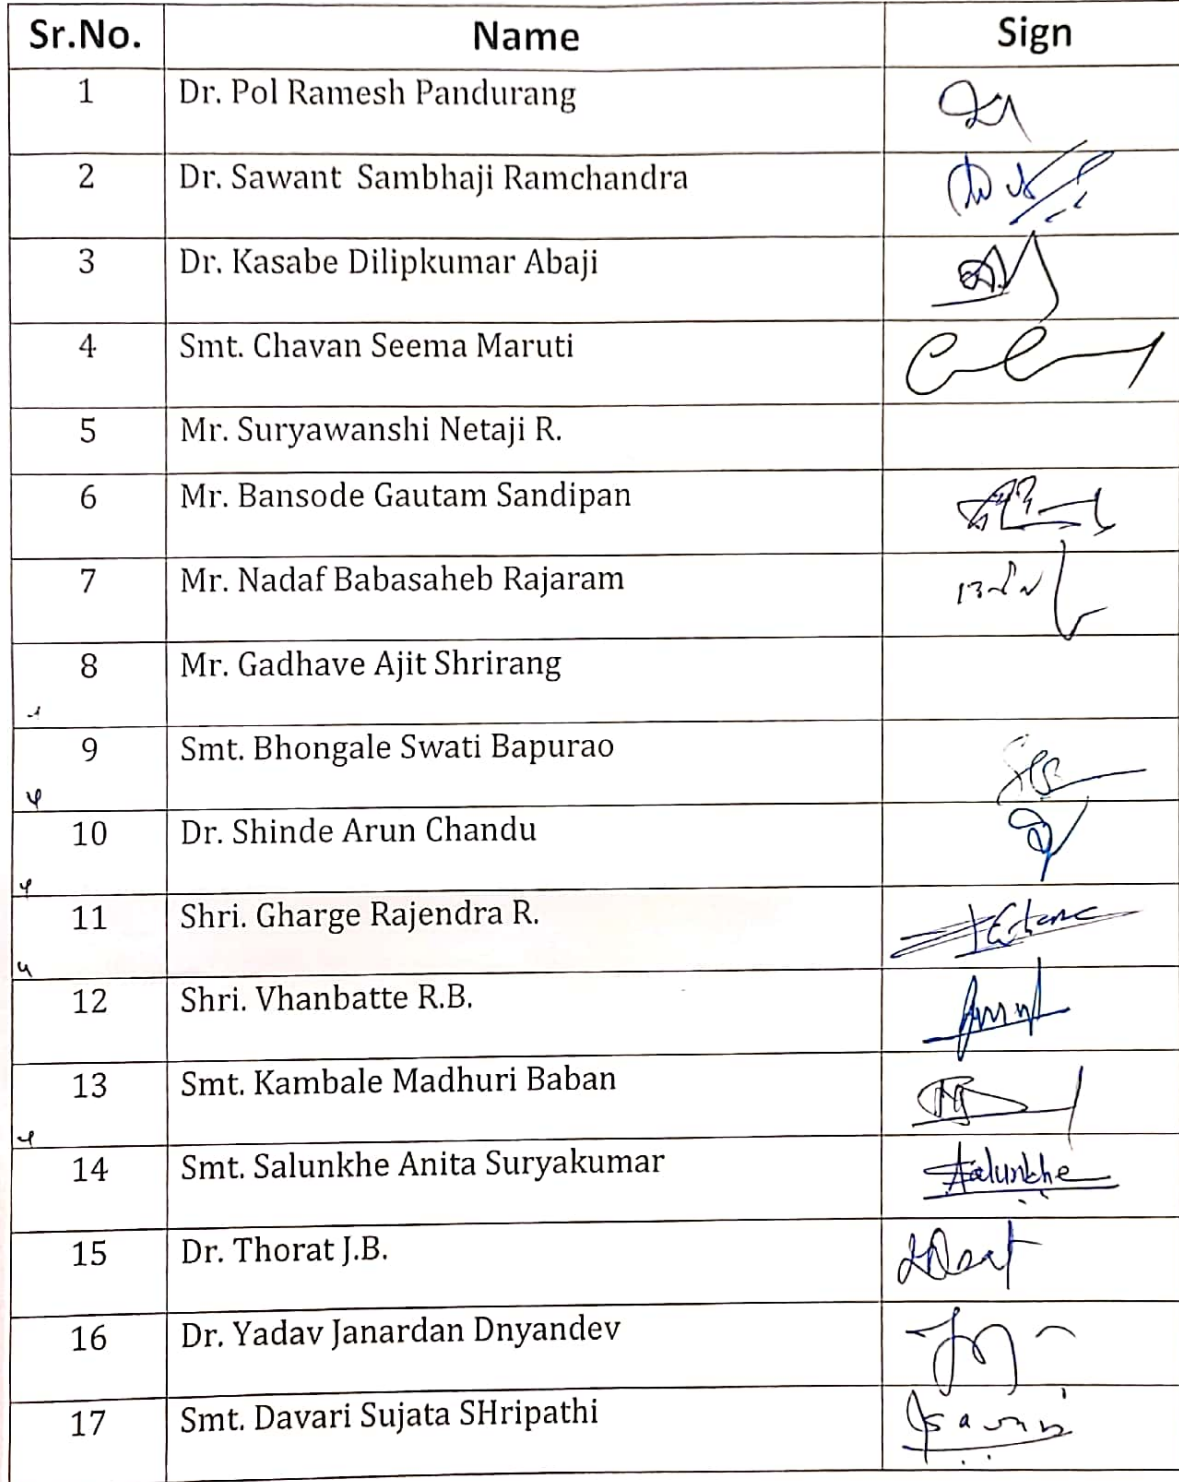 Sr.No. Name Sign
1 Dr. Pol Ramesh Pandurang
2 Dr. Sawant Sambhaji Ramchandra
3 Dr. Kasabe Dilipkumar Abaji
4 Smt. Chavan Seema Maruti
5 Mr. Suryawanshi Netaji R.
6 Mr. Bansode Gautam Sandipan
7 Mr. Nadaf Babasaheb Rajaram
8 Mr. Gadhave Ajit Shrirang
9 Smt. Bhongale Swati Bapurao
10 Dr. Shinde Arun Chandu
11 Shri. Gharge Rajendra R.
12 Shri. Vhanbatte R.B.
13 Smt. Kambale Madhuri Baban
14 Smt. Salunkhe Anita Suryakumar Salunkhe
15 Dr. Thorat J.B.
16 Dr. Yadav Janardan Dnyandev
17 Smt. Davari Sujata SHripathi